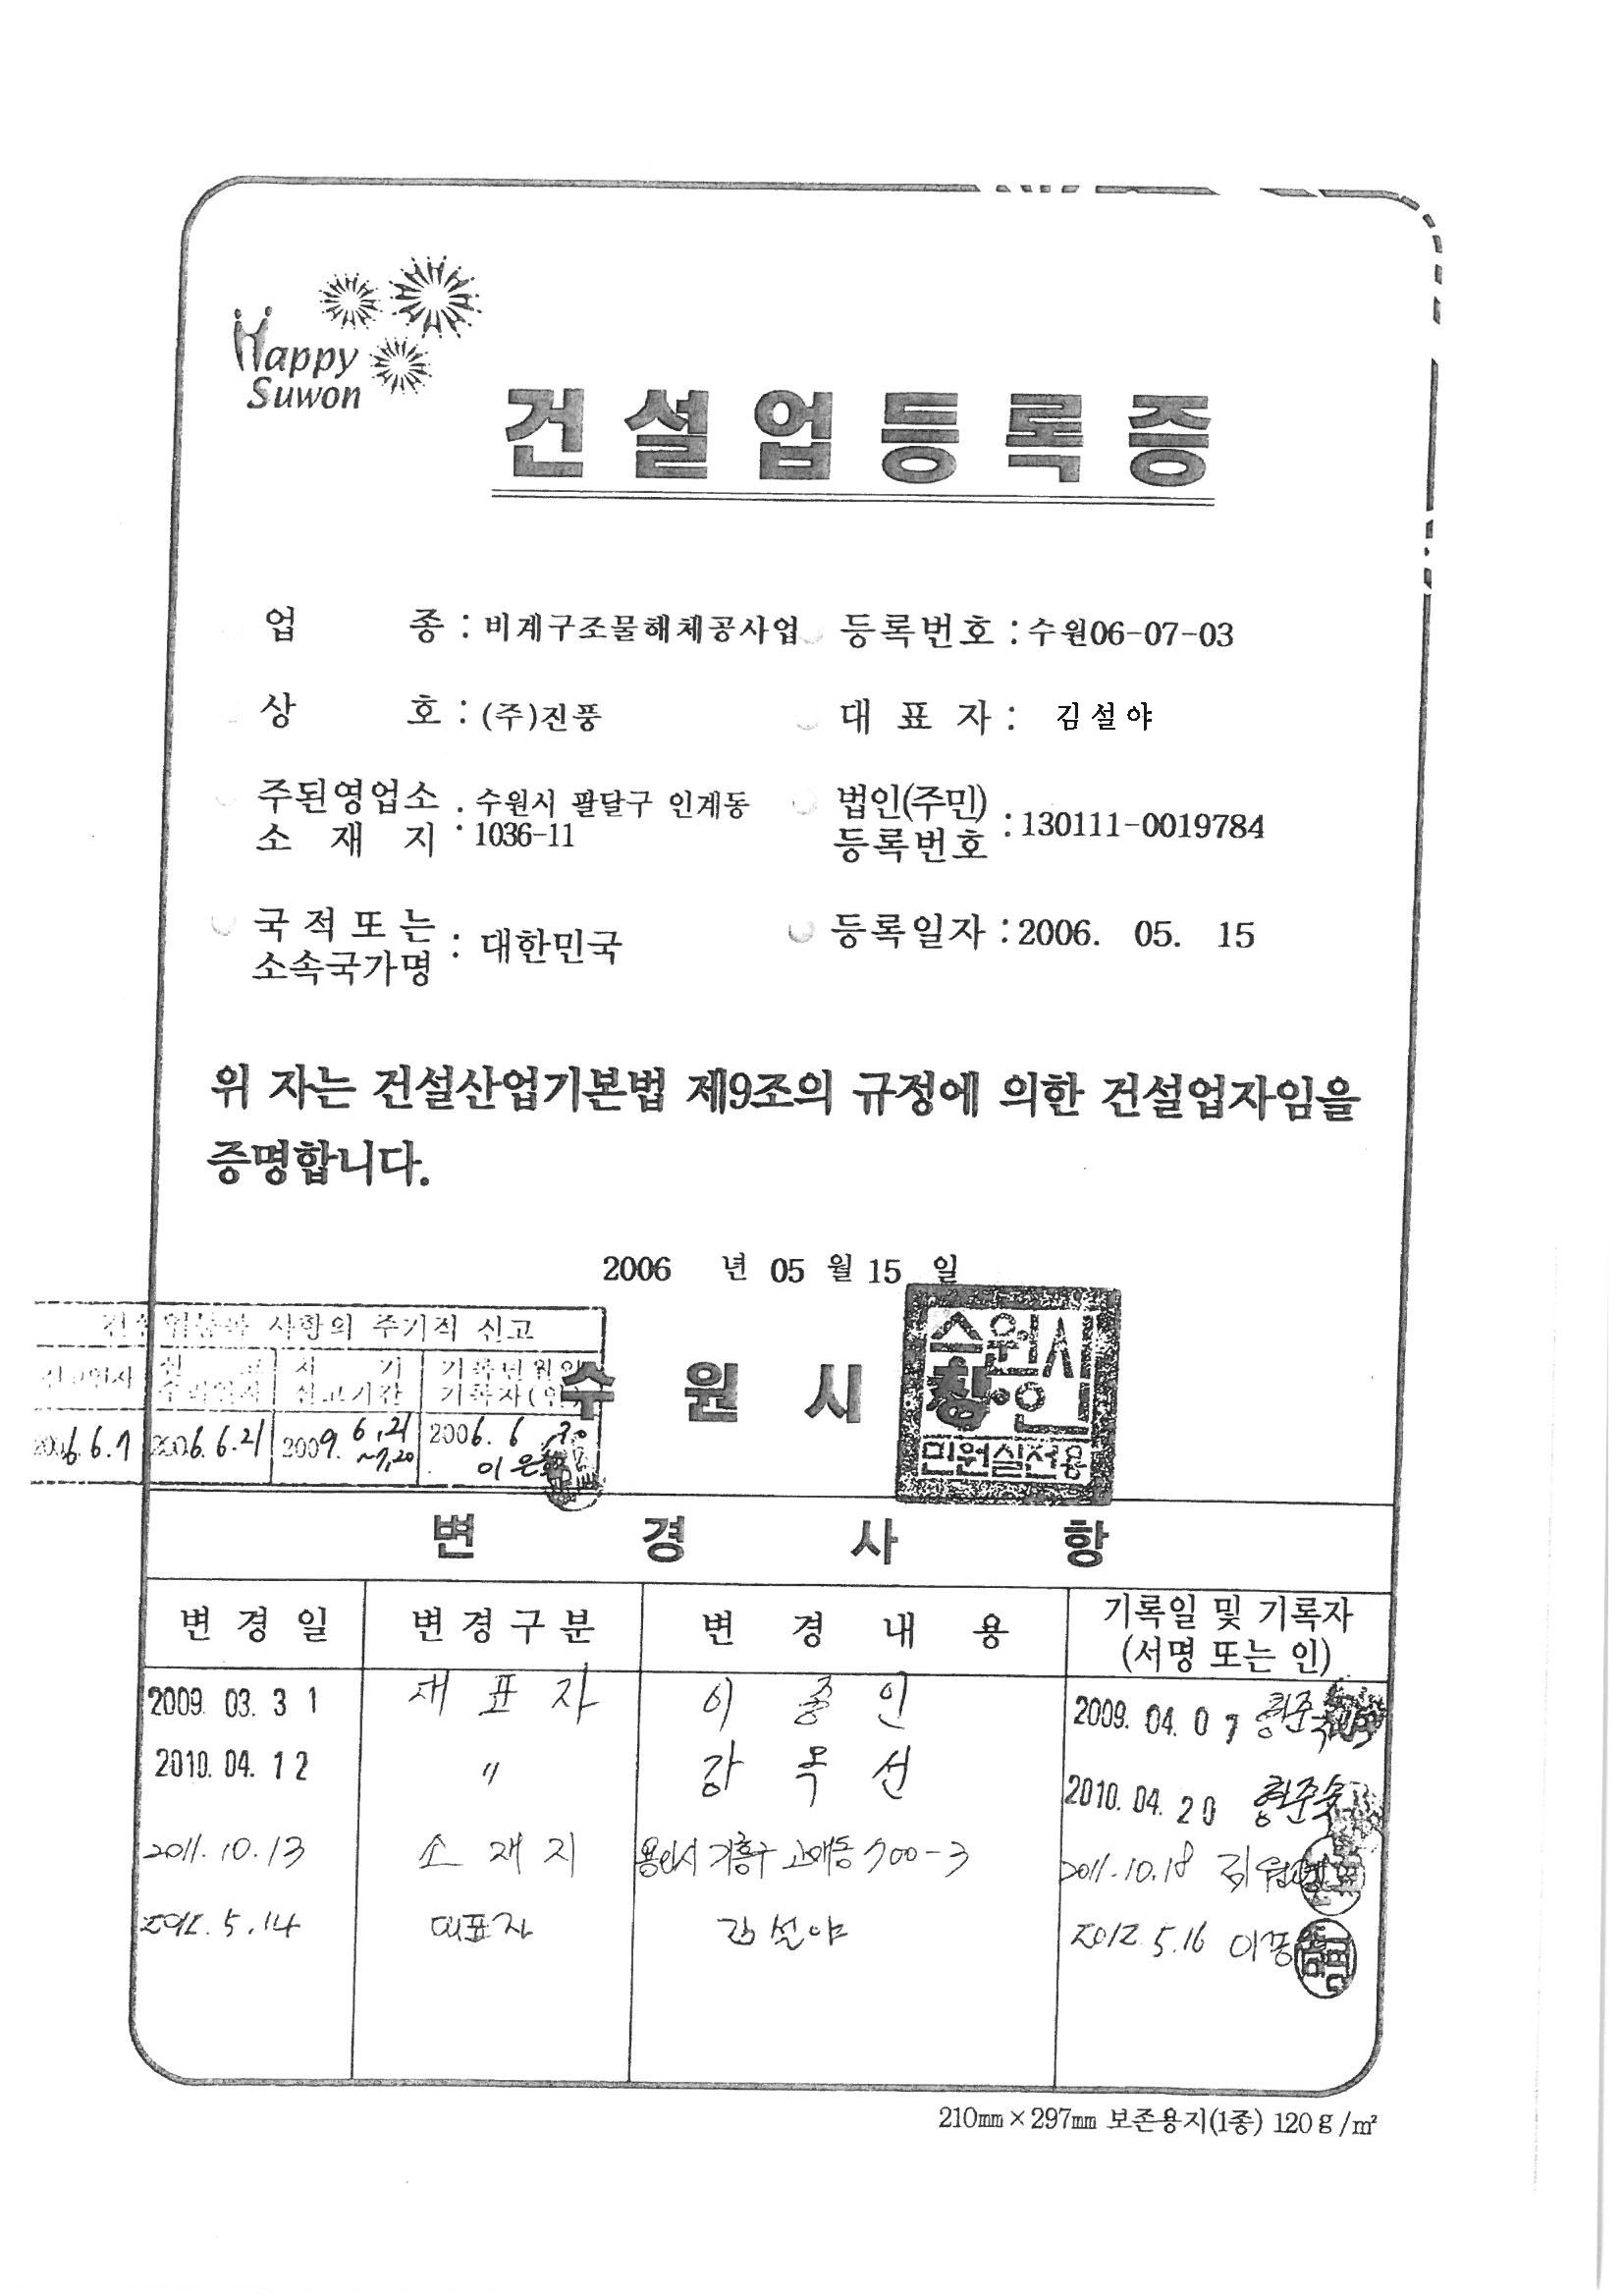 Happy
Suwon
건설업등록증
업 종 : 비계구조물해체공사업 등록번호 : 수원06-07-03
상 호 : (주)진풍 대 표 자 : 김설야
주된영업소 소 재 지 : 수원시 팔달구 인계동 1036-11
법인(주민) 등록번호 : 130111-0019784
국적또는 소속국가명 : 대한민국
등록일자 : 2006. 05. 15
위 자는 건설산업기본법 제9조의 규정에 의한 건설업자임을
증명합니다.
2006 년 05 월 15 일
사항의 주기적 신고
기록년월일
신고기간 기록자(인)
2006.6.21 2009. 6.21 ~7.20 2006. 6
이은
수 원 시 장
수원시
장인
민원실전용
변 경 사 항
변경일 변경구분 변 경 내 용 기록일 및 기록자
(서명 또는 인)
2009. 03. 31 대표자 이종인 2009. 04. 07
2010. 04. 12 〃 강옥선 2010. 04. 20
2011. 10. 13 소재지 용인시 기흥구 고매동 700-3 2011. 10. 18
2012. 5. 14 대표자 김설야 2012. 5. 16
210㎜×297㎜ 보존용지(1종) 120g/㎡